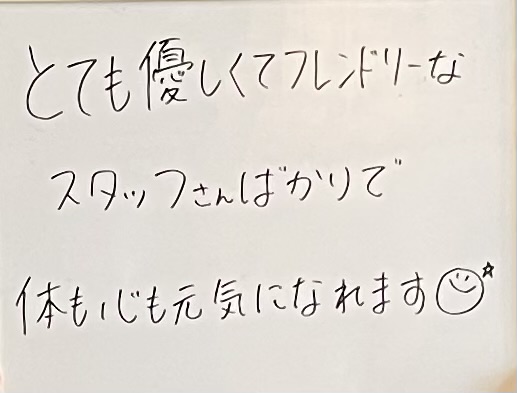 とても優しくてフレンドリーな
スタッフさんばかりで
体も心も元気になれます☺☆